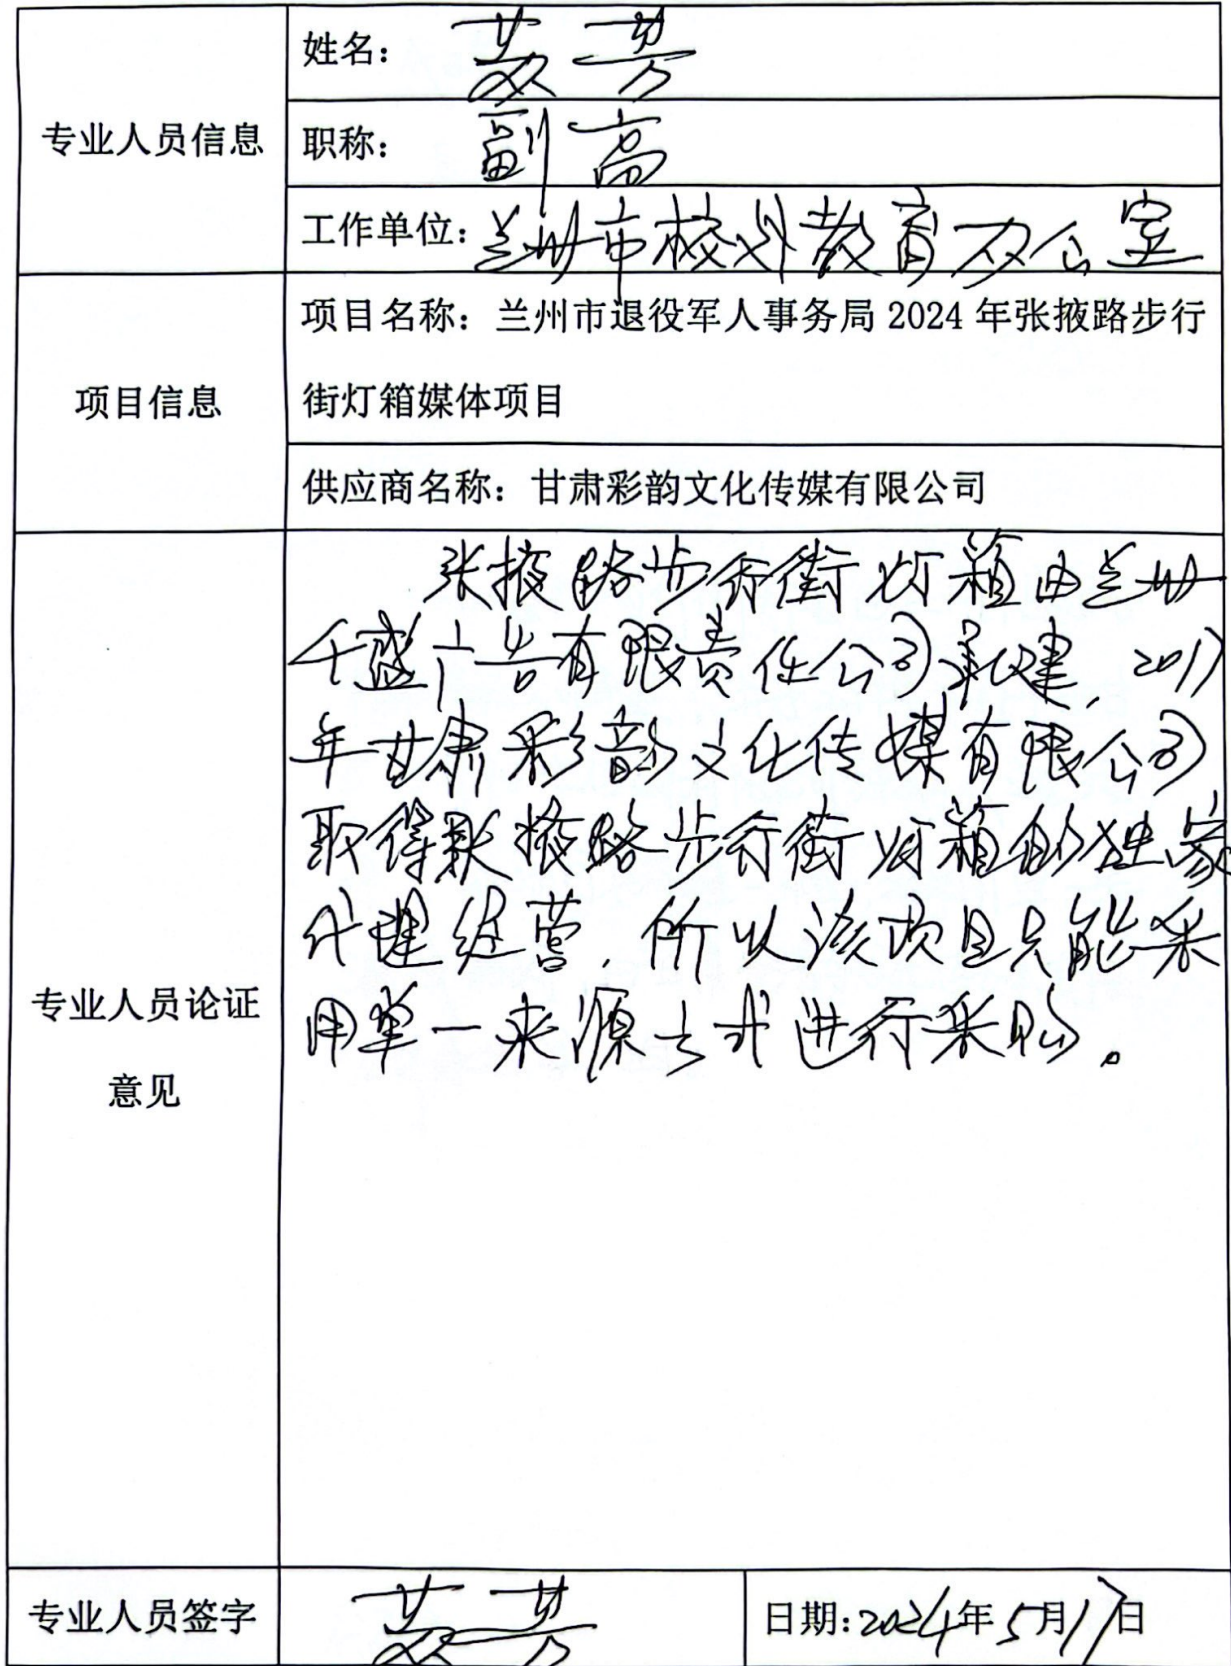 专业人员信息
姓名：芳
职称：副高
工作单位：兰州市校外教育办公室
项目信息
项目名称：兰州市退役军人事务局 2024 年张掖路步行
街灯箱媒体项目
供应商名称：甘肃彩韵文化传媒有限公司
专业人员论证
意见
张掖路步行街灯箱由兰州
千盛广告有限责任公司承建，2017
年甘肃彩韵文化传媒有限公司
取得张掖路步行街灯箱的独家
代理经营，所以该项目只能采
用单一来源方式进行采购。
专业人员签字
芳
日期：2024年5月17日